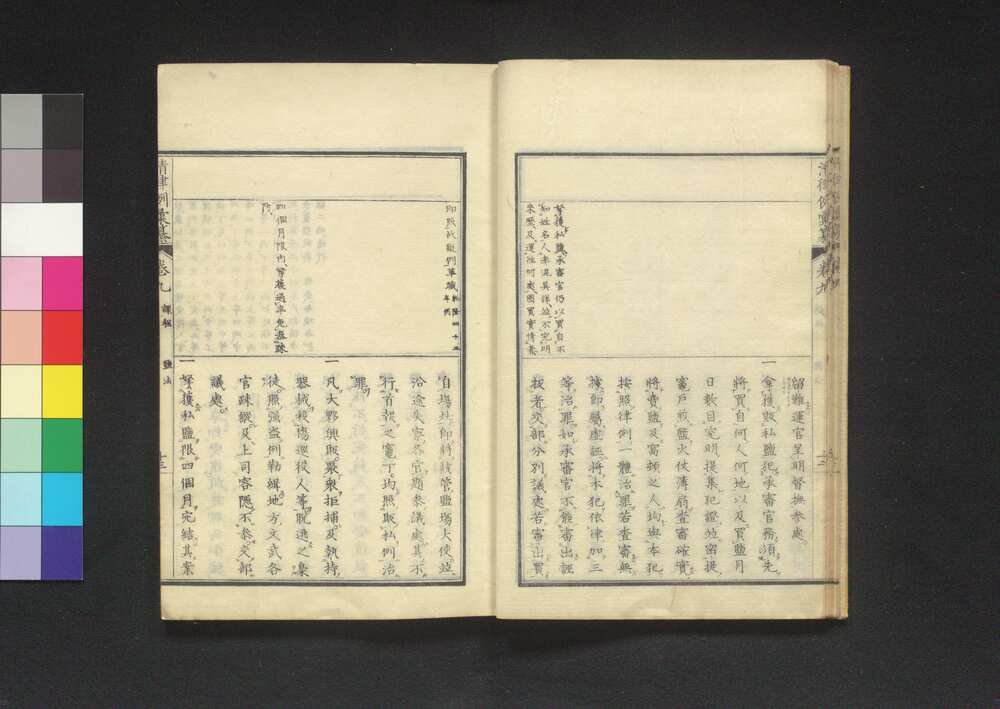 拏獲私鹽承審官仍以買自不
知姓名人未混具詳竝不究明
來歷及運往何處囤買實情者
留難運官呈明督撫參處
一拿獲販私鹽犯承審官務須先
將買自何人何地以及買鹽月
日數目究明提集犯證竝密提
竈戶煎鹽火伏簿扇查審確實
將賣鹽及窩頓之人均與本犯
按照律例一體治罪若查審無
據即屬虛誣將本犯依律加三
等治罪如承審官不能審出誣
扳者交部分別議處若審出買
即照故縱例革職乾隆四十五
年例
四個月限內拏獲過半免無疎
防
自場竈即將該管鹽場大使竝
沿途失察各官題參議處其不
行首報之竈丁均照販私例治
罪
一凡大夥興販聚衆拒捕及執持
器械積慣巡役人等脫逃之梟
徒照強盜例勒緝地方文武各
官疎縱及上司容隱不參交部
議處
一拏獲私鹽限四個月完結其案
清律例彙纂
卷九
課程
鹽法
十三